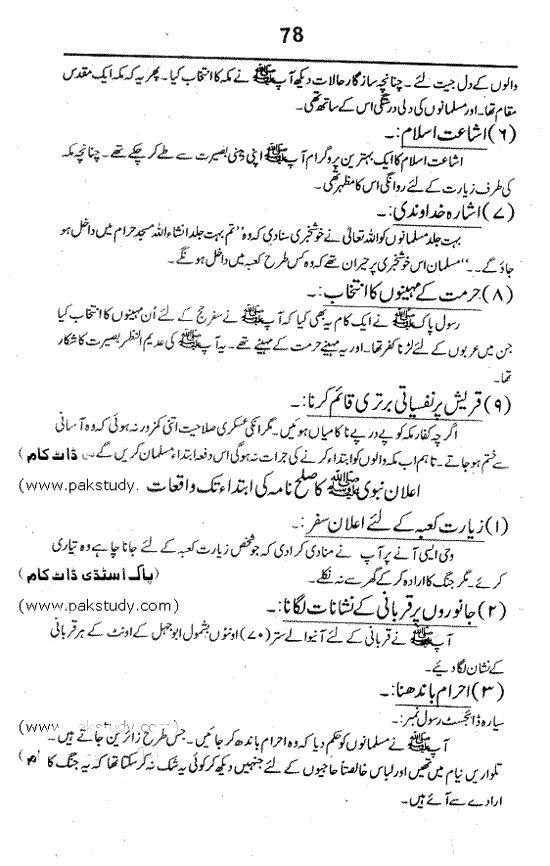 78
والوں کے دل جیت لئے۔ چنانچہ ساز گار حالات دیکھ آپ ﷺ نے مکہ کا انتخاب کیا۔ پھر یہ کہ مکہ ایک مقدس
مقام تھا۔ اور مسلمانوں کی دلی درستگی اس کے ساتھ تھی۔
(۶) اشاعت اسلام:۔
اشاعت اسلام کا ایک بہترین پروگرام آپ ﷺ اپنی بصیرت سے طے کر چکے تھے۔ چنانچہ مکہ
کی طرف زیارت کے لئے روانگی اس کا مظہر تھی۔
(۷) اشارہ خداوندی:۔
بہت جلد مسلمانوں کو اللہ تعالٰی نے خوشخبری سنا دی کہ وہ ”تم بہت جلد انشاء اللہ مسجد حرام میں داخل ہو
جاؤ گے۔۔“ مسلمان اس خوشخبری پر حیران تھے کہ وہ کس طرح کعبہ میں داخل ہونگے۔
(۸) حرمت کے مہینوں کا انتخاب:۔
رسول پاک ﷺ نے ایک کام یہ بھی کیا کہ آپ ﷺ نے سفر حج کے لئے اُن مہینوں کا انتخاب کیا
جن میں عربوں کے لئے لڑنا کفر تھا۔ اور یہ مہینے حرمت کے مہینے تھے۔ یہ آپ ﷺ کی عدیم النظر بصیرت کا شکار
تھا۔
(۹) قریش پر نفسیاتی برتری قائم کرنا:۔
اگرچہ کفار مکہ کو پے در پے ناکامیاں ہوئیں۔ مگر انکی عسکری صلاحیت اتنی کمزور نہ ہوئی کہ وہ آسانی
سے ختم ہو جاتے۔ تاہم اب مکہ والوں کو ابتداء کرنے کی جرات نہ ہو گی اس دفعہ ابتداء مسلمان کریں گے۔ ڈاٹ کام)
اعلان نبوی ﷺ کا صلح نامہ کی ابتداء تک واقعات (www.pakstudy.
(۱) زیارت کعبہ کے لئے اعلان سفر:۔
وحی الہی آنے پر آپ نے منادی کرا دی کہ جو شخص زیارت کعبہ کے لئے جانا چاہے وہ تیاری
کرے۔ مگر جنگ کا ارادہ کر کے گھر سے نہ نکلے۔ (پاک اسٹڈی ڈاٹ کام)
(۲) جانوروں پر قربانی کے نشانات لگانا:۔ (www.pakstudy.com)
آپ ﷺ نے قربانی کے لئے آنیوالے ستر (۷۰) اونٹوں بشمول ابو جہل کے اونٹ کے ہر قربانی
کے نشان لگا دیئے۔
(۳) احرام باندھنا:۔
سیارہ ڈائجسٹ رسول نمبر:۔ (www.pakstudy.com)
آپ ﷺ نے مسلمانوں کو حکم دیا کہ وہ احرام باندھ کر جائیں۔ جس طرح زائرین جاتے ہیں۔
تلواریں نیام میں تھیں اور لباس خالصتاً حاجیوں کے لئے جنہیں دیکھ کر کوئی یہ شک نہ کر سکتا تھا کہ یہ جنگ کا
ارادے سے آئے ہیں۔